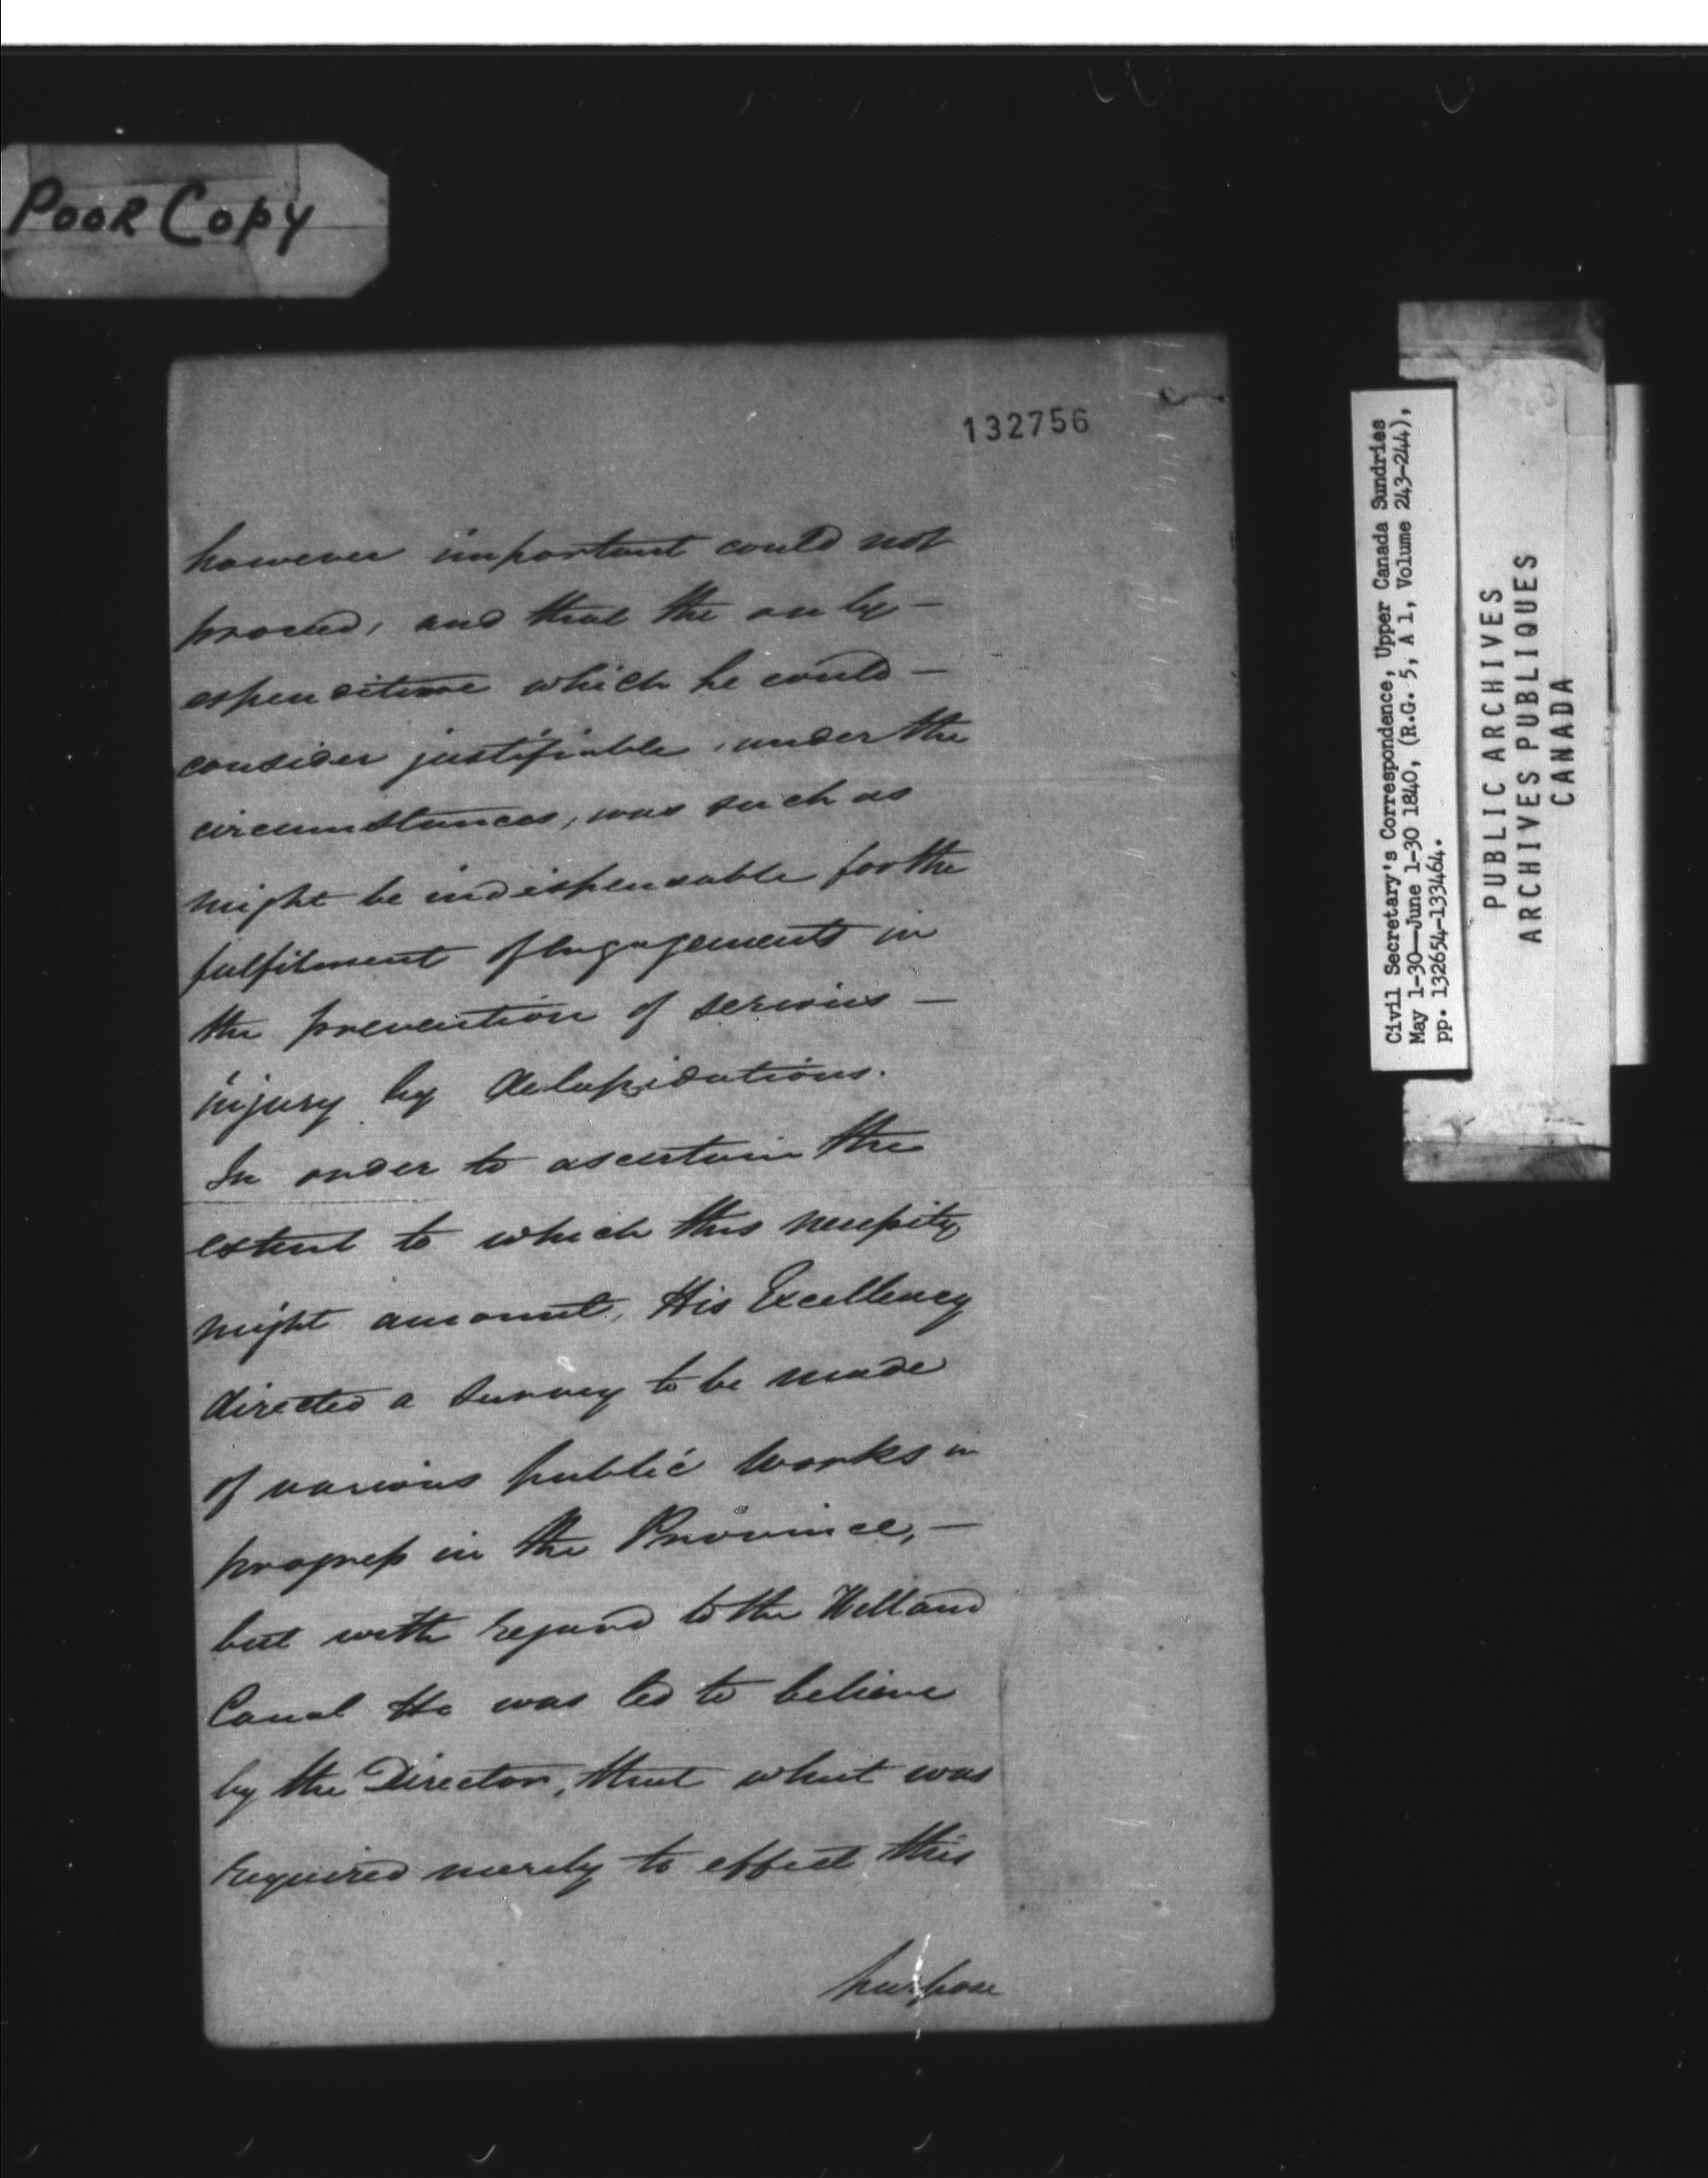 Poor Copy
132756
however important could not
proceed, and that the only —
expenditure which he could —
consider justifiable, under the
circumstances, was such as
might be indispensable for the
fulfilment of engagements in
the prevention of serious —
injury by delapidations.
In order to ascertain the
extent to which this necessity
might amount, His Excellency
directed a survey to be made
of various public works in
progress in the Province, —
but with regard to the Welland
Canal He was led to believe
by the Director, that what was
required merely to effect this
purpose
Civil Secretary's Correspondence, Upper Canada Sundries
May 1-30—June 1-30 1840, (R.G. 5, A 1, Volume 243-244),
pp. 132654-133464.
PUBLIC ARCHIVES
ARCHIVES PUBLIQUES
CANADA